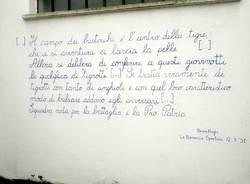 [..] Il campo dei bustocchi è l'antro della tigre,
chi ci si avventura ci lascia la pelle [..]
Allora si delibera di conferire a questi giovanotti
la qualifica di tigrotti [..] Si tratta veramente di
tigrotti con tanto di unghioli e con quel loro caratteristico
modo di balzare addosso agli avversari. [..]
Squadra nata per la battaglia è la Pro Patria.
La Domenica Sportiva